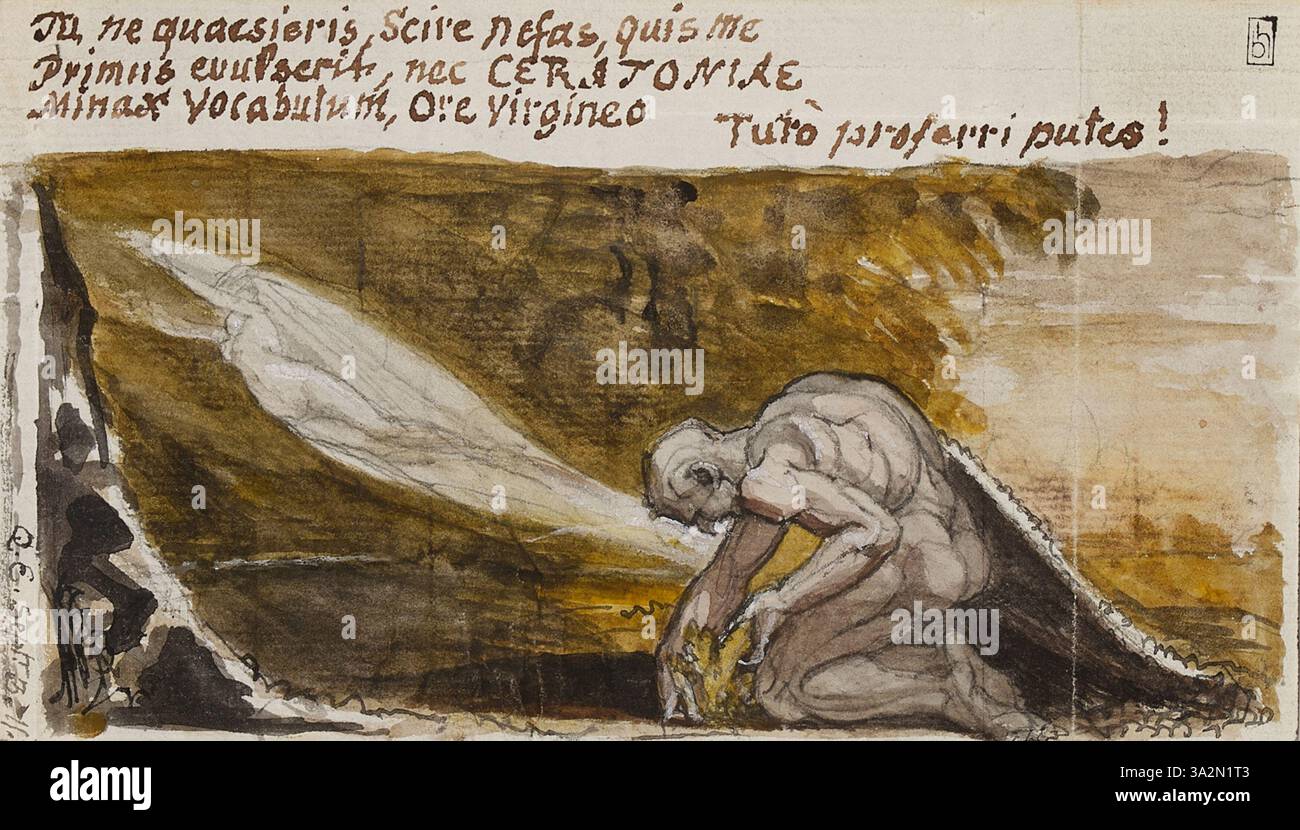 Tu, ne quaesieris, Scire nefas, quis me
Primus evulserit, nec CERATONIAE
Minax Vocabulum, Ore Virgineo
Tutò proferri putes!
alamy
Image ID: 3A2N1T3
www.alamy.com